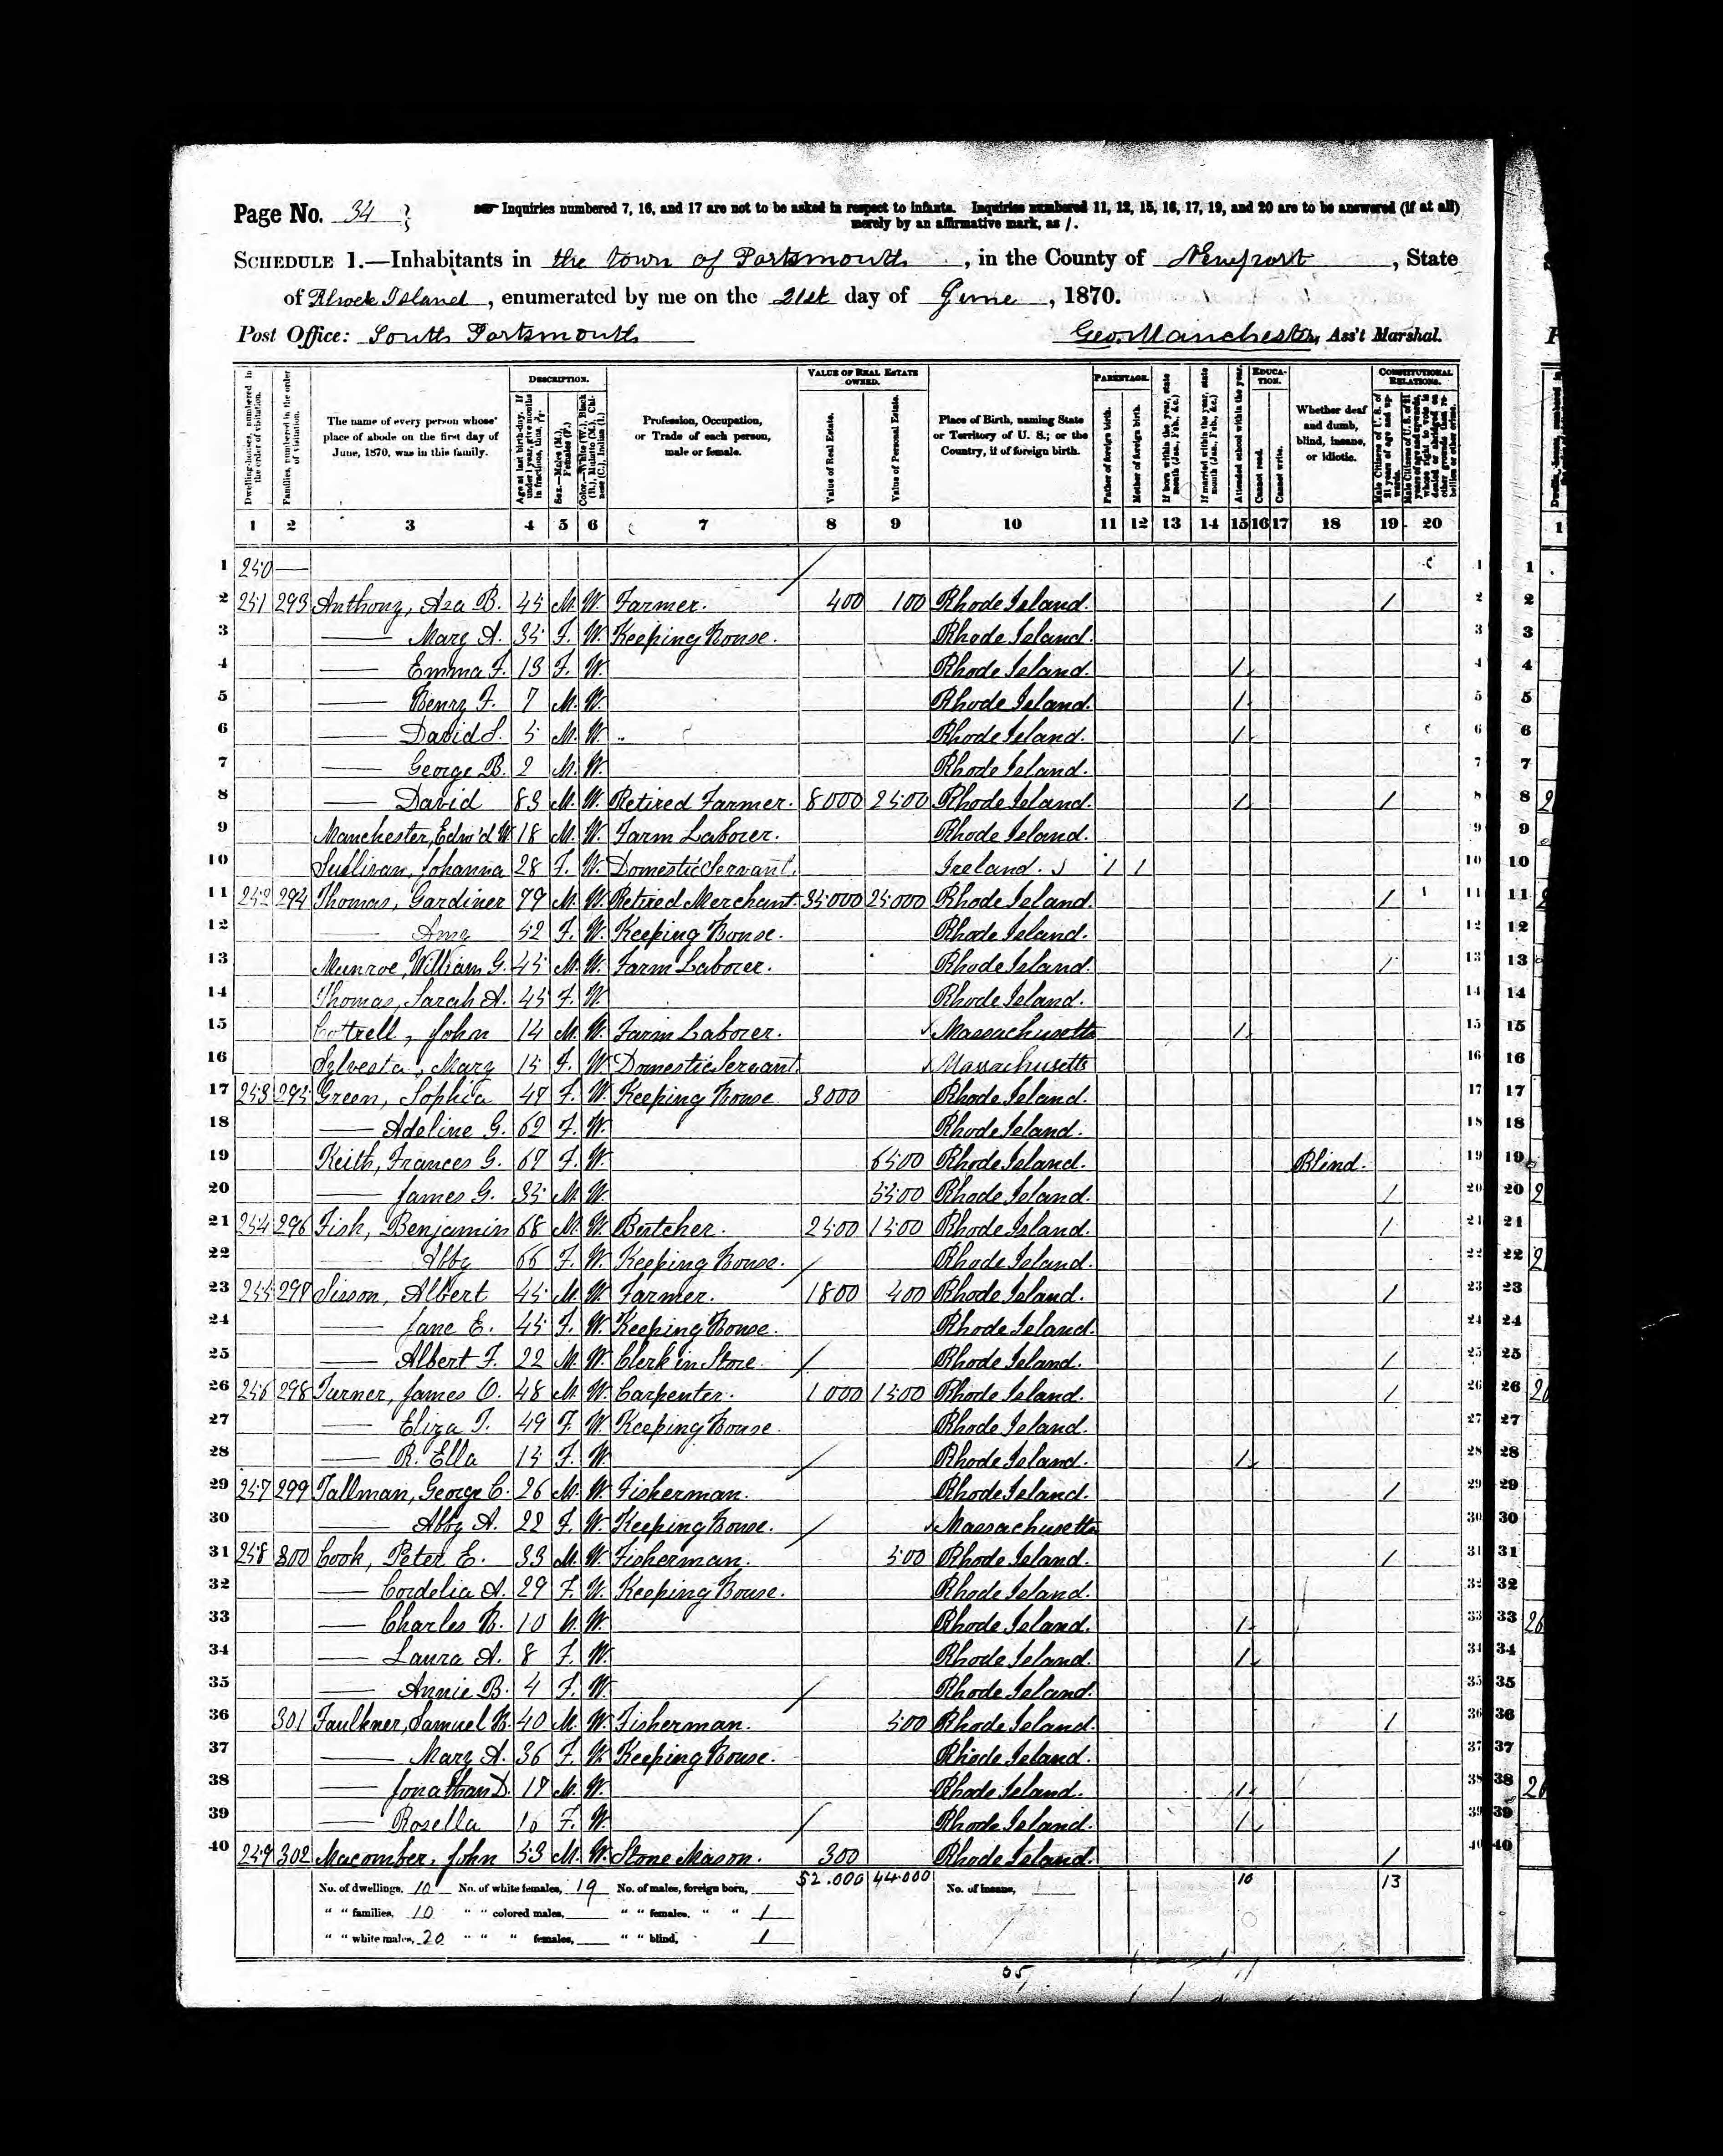 Page No. 34
Inquiries numbered 7, 16, and 17 are not to be asked in respect to infants. Inquiries numbered 11, 12, 15, 16, 17, 19, and 20 are to be answered (if at all)
merely by an affirmative mark, as /.
SCHEDULE 1.—Inhabitants in the town of Portsmouth, in the County of Newport, State
of Rhode Island, enumerated by me on the 21st day of June, 1870.
Post Office: South Portsmouth Geo. Manchester, Ass't Marshal.
Dwelling-houses, numbered in the order of visitation.
Families, numbered in the order of visitation.
The name of every person whose place of abode on the first day of June, 1870, was in this family.
DESCRIPTION.
Age at last birth-day. If under 1 year, give months in fractions, thus, 3/12.
Sex.—Males (M.), Females (F.)
Color.—White (W.), Black (B.), Mulatto (M.), Chinese (C.), Indian (I.)
Profession, Occupation, or Trade of each person, male or female.
VALUE OF REAL ESTATE OWNED.
Value of Real Estate.
Value of Personal Estate.
Place of Birth, naming State or Territory of U. S.; or the Country, if of foreign birth.
PARENTAGE.
Father of foreign birth.
Mother of foreign birth.
If born within the year, state month (Jan., Feb., &c.)
If married within the year, state month (Jan., Feb., &c.)
Attended school within the year.
EDUCATION.
Cannot read.
Cannot write.
Whether deaf and dumb, blind, insane, or idiotic.
CONSTITUTIONAL RELATIONS.
Male Citizens of U. S. of 21 years of age and upwards.
Male Citizens of U. S. of 21 years of age and upwards, whose right to vote is denied or abridged on other grounds than rebellion or other crime.
1 2 3 4 5 6 7 8 9 10 11 12 13 14 15 16 17 18 19 20
1 250 — 1
2 251 293 Anthony, Asa B. 45 M. W. Farmer. 400 100 Rhode Island. / 2
3 —— Mary A. 35 F. W. Keeping House. Rhode Island. 3
4 —— Emma F. 13 F. W. Rhode Island. / 4
5 —— Henry F. 7 M. W. Rhode Island. / 5
6 —— David S. 5 M. W. Rhode Island. / 6
7 —— George B. 2 M. W. Rhode Island. 7
8 —— David 83 M. W. Retired Farmer. 8000 2500 Rhode Island. / / 8
9 Manchester, Edw'd W. 18 M. W. Farm Laborer. Rhode Island. 9
10 Sullivan, Johanna 28 F. W. Domestic Servant. Ireland. / / 10
11 252 294 Thomas, Gardiner 79 M. W. Retired Merchant. 35000 25000 Rhode Island. / 11
12 —— Amy 52 F. W. Keeping House. Rhode Island. 12
13 Munroe, William G. 45 M. W. Farm Laborer. Rhode Island. / 13
14 Thomas, Sarah A. 45 F. W. Rhode Island. 14
15 Cottrell, John 14 M. W. Farm Laborer. Massachusetts / 15
16 Sylvesta, Mary 15 F. W. Domestic Servant. Massachusetts 16
17 253 295 Green, Sophia 47 F. W. Keeping House 3000 Rhode Island. 17
18 —— Adeline G. 62 F. W. Rhode Island. 18
19 Keith, Frances G. 67 F. W. 6500 Rhode Island. Blind. 19
20 —— James G. 35 M. W. 5500 Rhode Island. / 20
21 254 296 Fish, Benjamin 68 M. W. Butcher. 2500 1500 Rhode Island. / 21
22 —— Abby 66 F. W. Keeping House. Rhode Island. 22
23 255 297 Sisson, Albert 45 M. W. Farmer. 1800 400 Rhode Island. / 23
24 —— Jane E. 45 F. W. Keeping House. Rhode Island. 24
25 —— Albert F. 22 M. W. Clerk in Store. Rhode Island. / 25
26 256 298 Turner, James O. 48 M. W. Carpenter. 1000 1500 Rhode Island. / 26
27 —— Eliza T. 49 F. W. Keeping House. Rhode Island. 27
28 —— R. Ella 15 F. W. Rhode Island. / 28
29 257 299 Tallman, George C. 26 M. W. Fisherman. Rhode Island. / 29
30 —— Abby A. 22 F. W. Keeping House. Massachusetts 30
31 258 300 Cook, Peter E. 33 M. W. Fisherman. 500 Rhode Island. / 31
32 —— Cordelia A. 29 F. W. Keeping House. Rhode Island. 32
33 —— Charles H. 10 M. W. Rhode Island. / 33
34 —— Laura A. 8 F. W. Rhode Island. / 34
35 —— Annie B. 4 F. W. Rhode Island. 35
36 301 Faulkner, Samuel H. 40 M. W. Fisherman. 500 Rhode Island. / 36
37 —— Mary A. 36 F. W. Keeping House. Rhode Island. 37
38 —— Jonathan D. 17 M. W. Rhode Island. / 38
39 —— Rosella 16 F. W. Rhode Island. / 39
40 259 302 Macomber, John 53 M. W. Stone Mason. 300 Rhode Island. / 40
No. of dwellings, 10 No. of white females, 19 No. of males, foreign born, 52.000 44.000 No. of insane, 10 13
" " families, 10 " " colored males, " " females, " " 1
" " white males, 20 " " " females, " " blind, 1